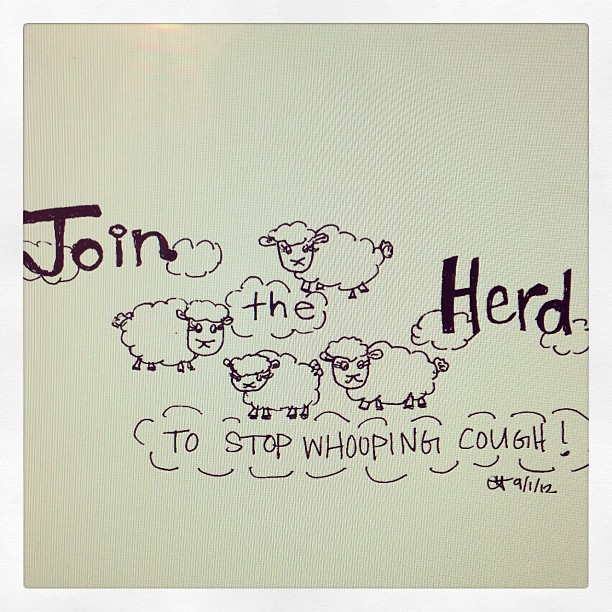 Join
the
Herd
TO STOP WHOOPING COUGH!
9/1/12